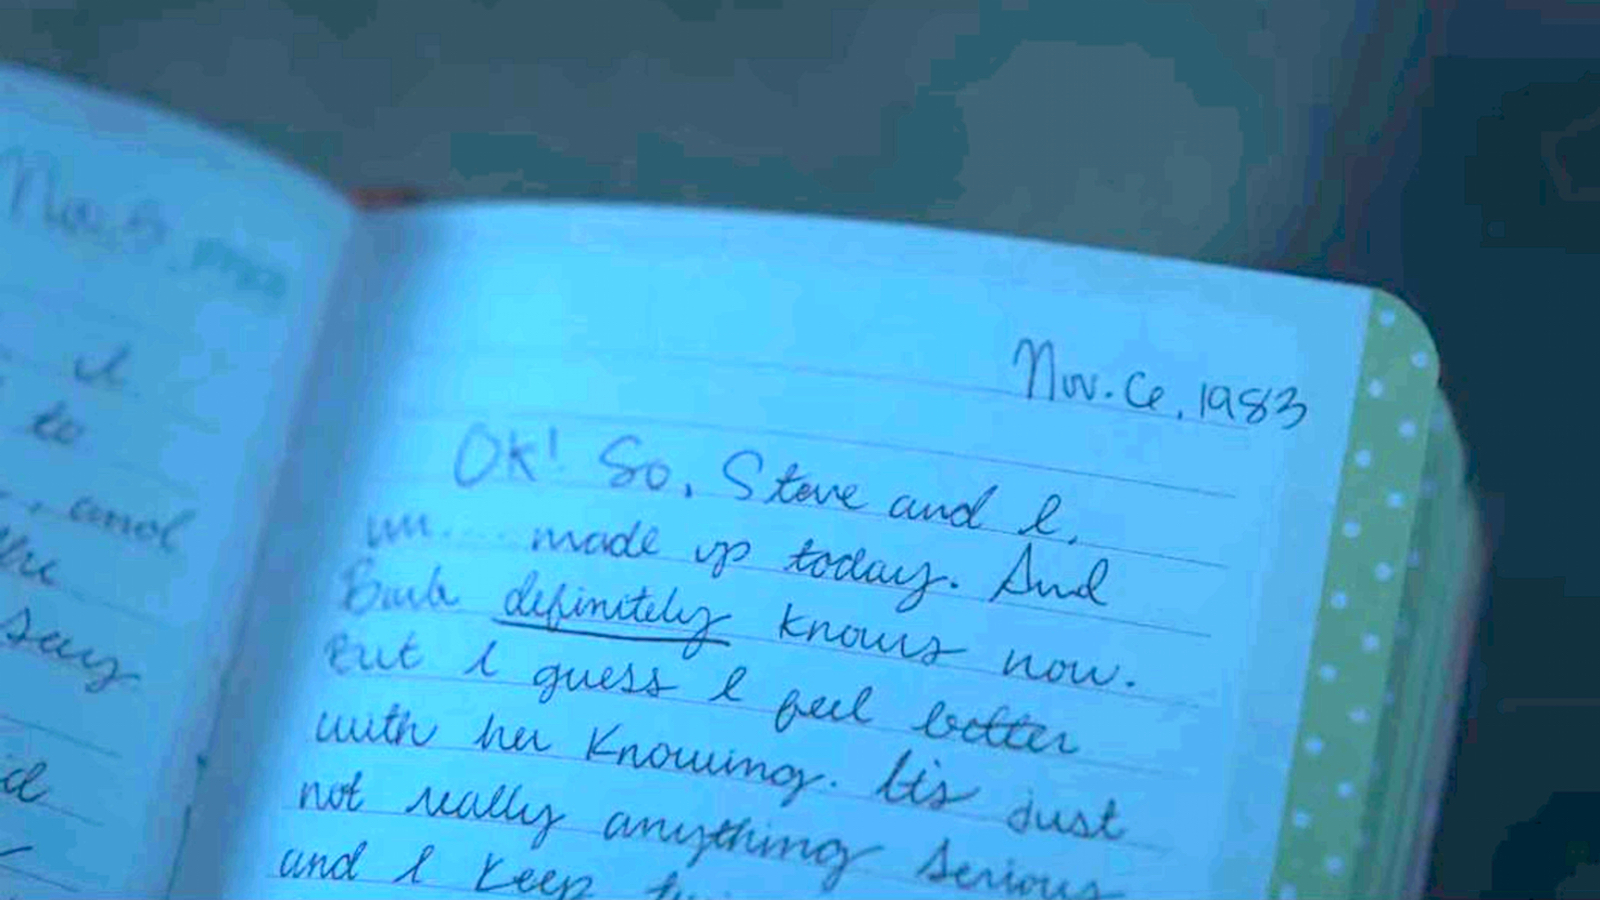 I
to
, and
the
say
Nov. 6, 1983
OK! So, Steve and I,
um.... made up today. And
Barb definitely knows now.
But I guess I feel better
with her knowing. It's just
not really anything serious
and I keep